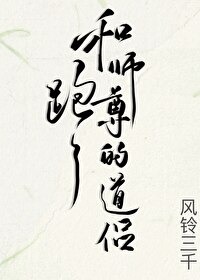 和师尊的道侣
跑了
风铃三千